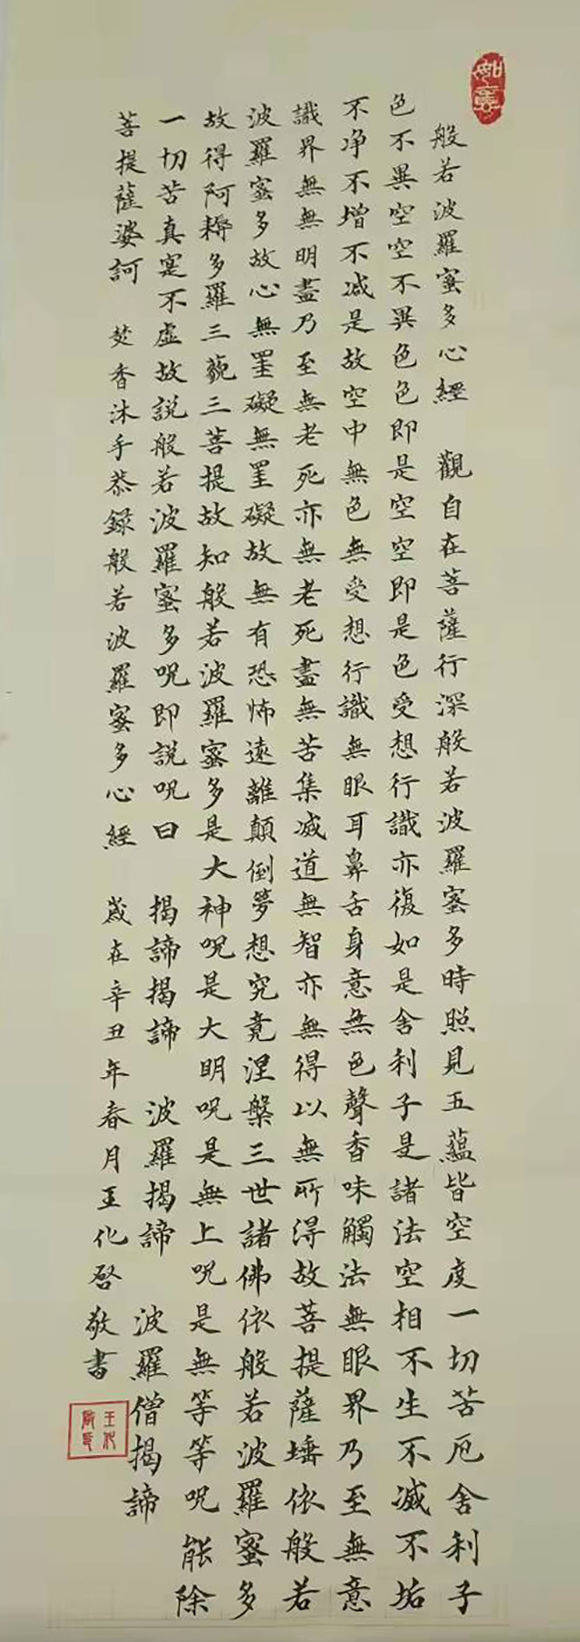 如意
般若波羅蜜多心經 觀自在菩薩行深般若波羅蜜多時照見五蘊皆空度一切苦厄舍利子
色不異空空不異色色即是空空即是色受想行識亦復如是舍利子是諸法空相不生不滅不垢
不净不增不减是故空中無色無受想行識無眼耳鼻舌身意無色聲香味觸法無眼界乃至無意
識界無無明盡乃至無老死亦無老死盡無苦集滅道無智亦無得以無所得故菩提薩埵依般若
波羅蜜多故心無罣礙無罣礙故無有恐怖遠離顛倒夢想究竟涅槃三世諸佛依般若波羅蜜多
故得阿耨多羅三藐三菩提故知般若波羅蜜多是大神呪是大明呪是無上呪是無等等呪能除
一切苦真寔不虛故說般若波羅蜜多呪即說呪曰 揭諦揭諦 波羅揭諦 波羅僧揭諦
菩提薩婆訶 焚香沐手恭録般若波羅蜜多心經 歲在辛丑年春月王化啓敬書